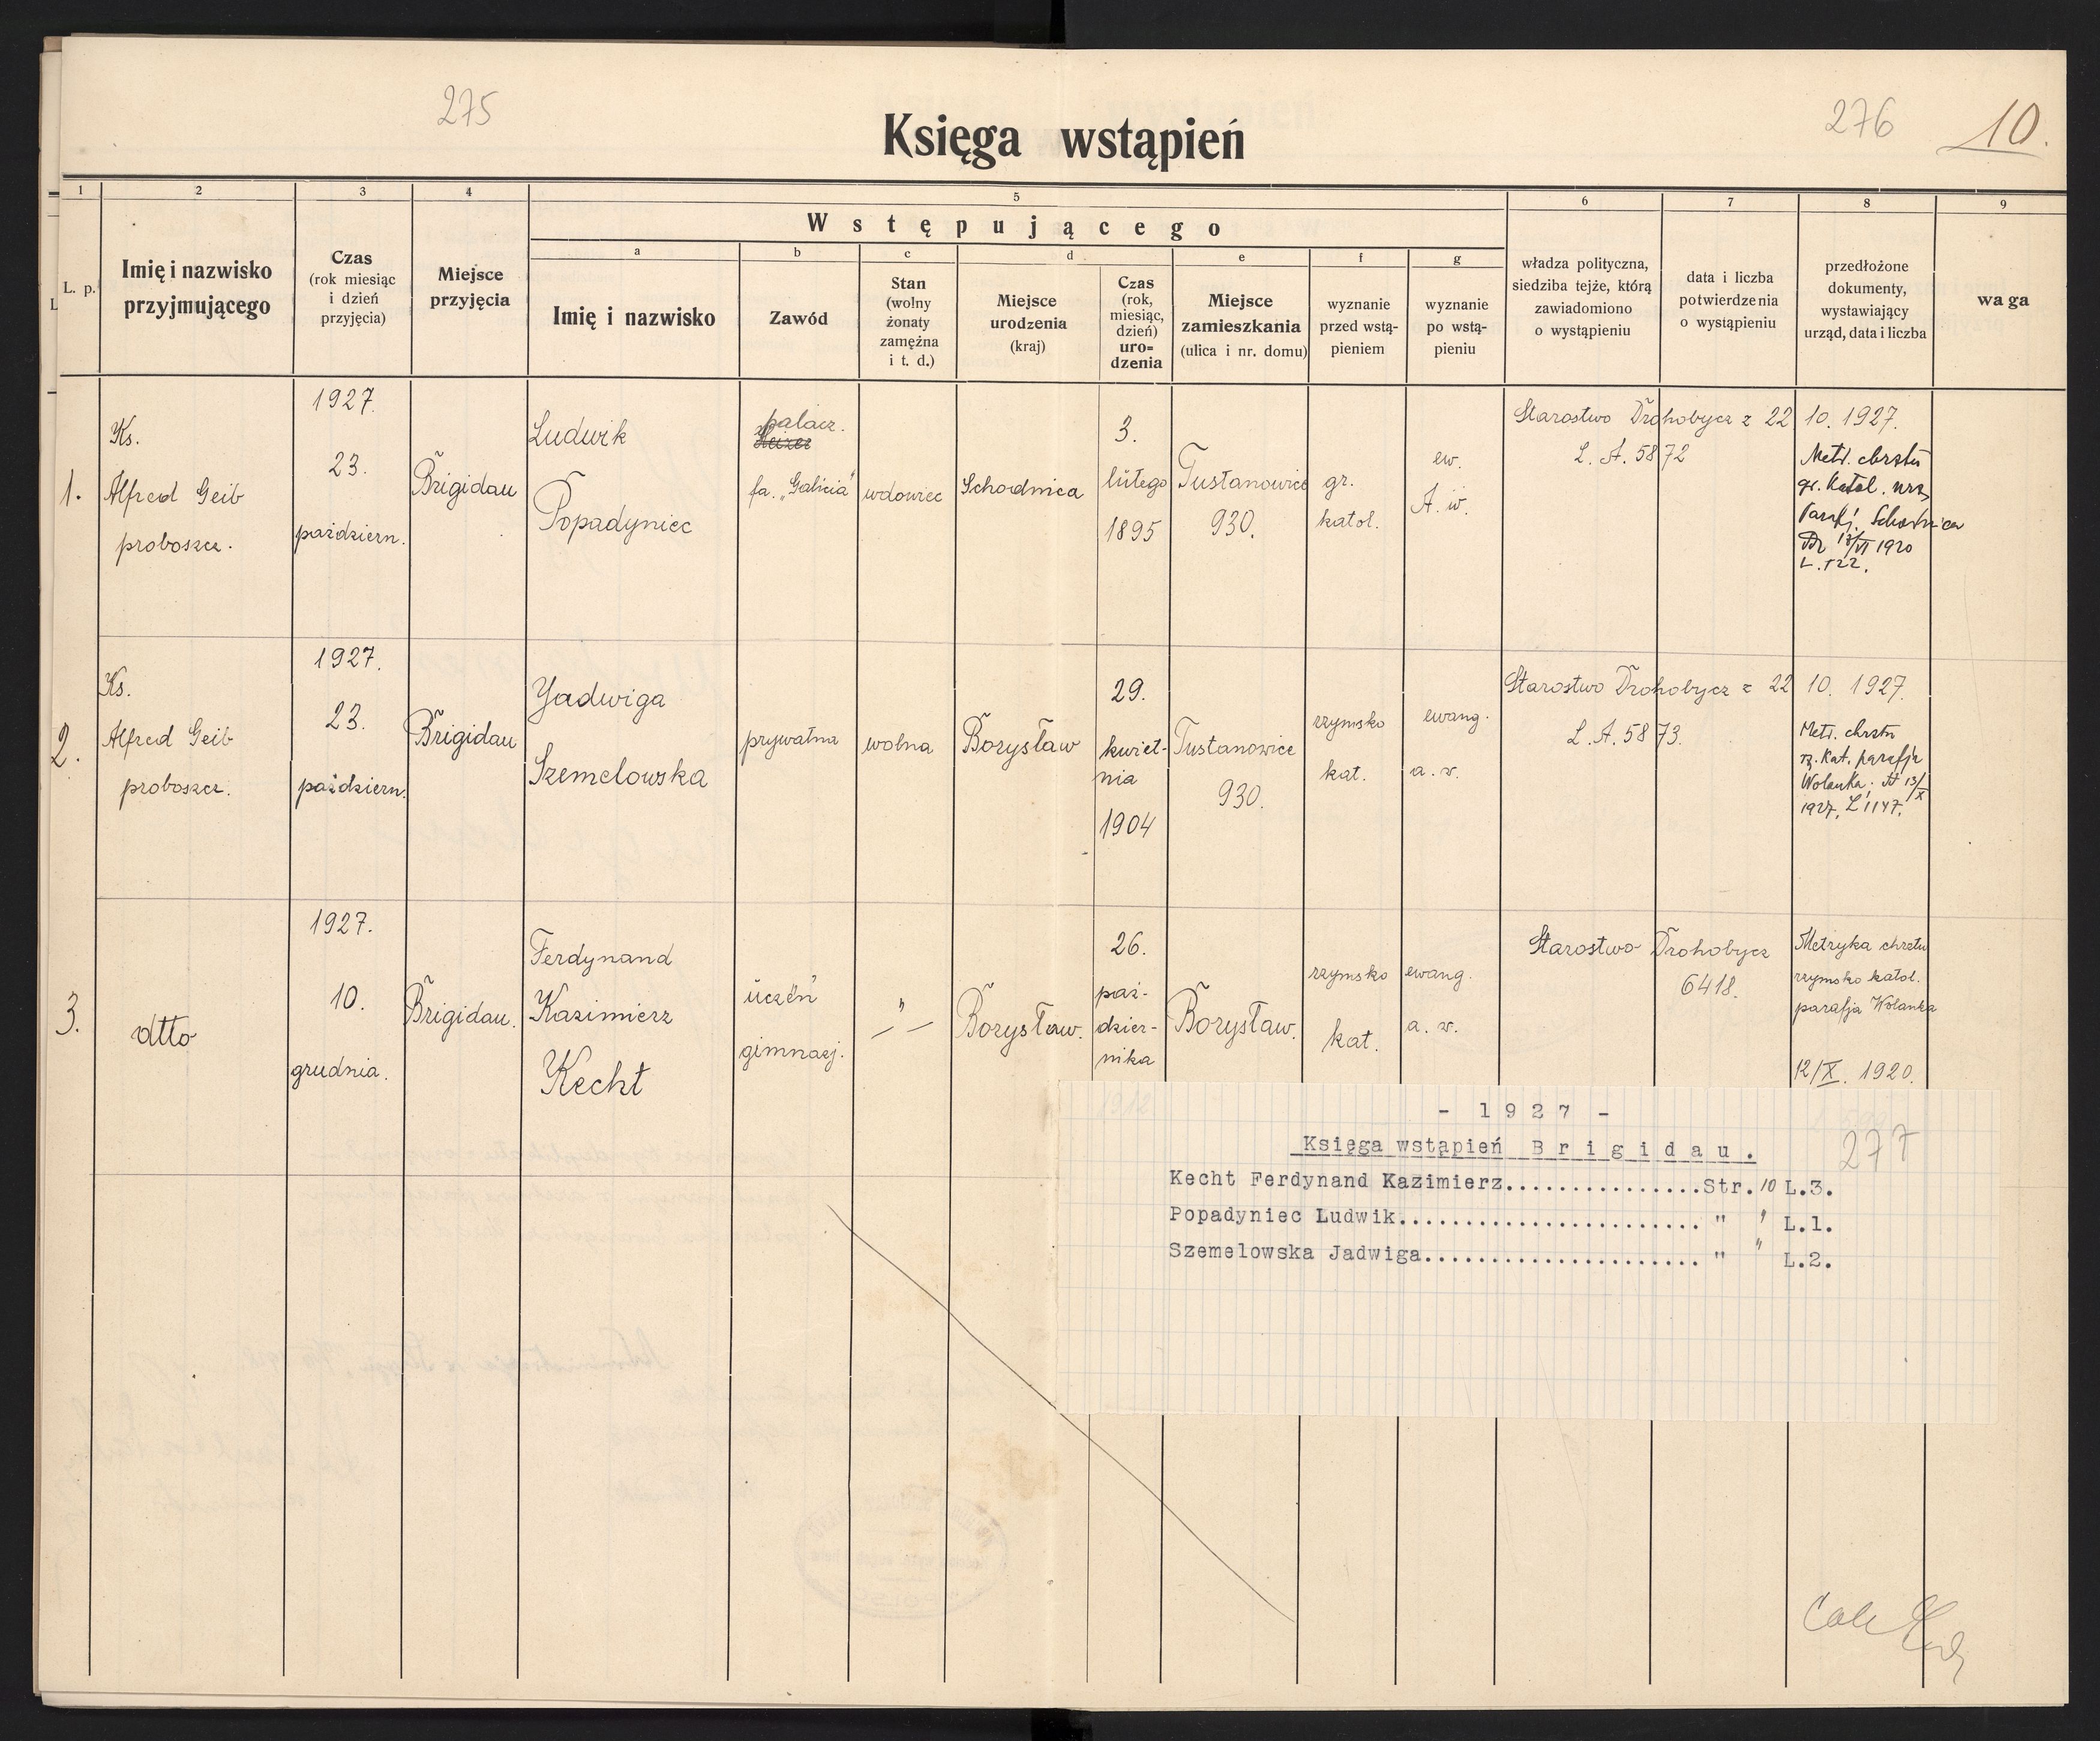 275
276
10.
Księga wstąpień
1 2 3 4 5 6 7 8 9
L. p.
Imię i nazwisko
przyjmującego
Czas
(rok miesiąc
i dzień
przyjęcia)
Miejsce
przyjęcia
Wstępującego
a b c d e f g
Imię i nazwisko
Zawód
Stan
(wolny
żonaty
zamężna
i t. d.)
Miejsce
urodzenia
(kraj)
Czas
(rok,
miesiąc,
dzień)
uro=
dzenia
Miejsce
zamieszkania
(ulica i nr. domu)
wyznanie
przed wstą-
pieniem
wyznanie
po wstą-
pieniu
władza polityczna,
siedziba tejże, którą
zawiadomiono
o wystąpieniu
data i liczba
potwierdzenia
o wystąpieniu
przedłożone
dokumenty,
wystawiający
urząd, data i liczba
wa ga
1.
Ks.
Alfred Geib
proboszcz.
1927.
23.
październ.
Brigidau
Ludwik
Popadyniec
palacz.
fa. „Galicia"
wdowiec
Schodnica
3.
lutego
1895
Tustanowice
930.
gr.
katol.
ew.
A. w.
Starostwo Drohobycz z 22 10. 1927.
L. A. 5872
Metr. chrztu
gr. katol. urz.
Paraf. Schodnica
1920
2.
Ks.
Alfred Geib
proboszcz.
1927.
23.
październ.
Brigidau
Jadwiga
Szemelowska
prywatna
wolna
Borysław
29.
kwiet-
nia
1904
Tustanowice
930.
rzymsko
kat.
ewang.
a. w.
Starostwo Drohobycz z 22 10. 1927.
L. A. 5873.
Metr. chrztu
rz. kat. parafja
Wolanka; 13/X
1927, L 1147.
3.
dtto
1927.
10.
grudnia.
Brigidau.
Ferdynand
Kazimierz
Kecht
uczeń
gimnazj.
–"–
Borysław.
26.
paź-
dzier-
nika
Borysław.
rzymsko
kat.
ewang.
a. w.
Starostwo Drohobycz
6418.
Metryka chrztu
rzymsko katol.
parafja Wolanka
12/X. 1920.
- 1927 -
Księga wstąpień Brigidau.
277
Kecht Ferdynand Kazimierz...............Str. 10 L.3.
Popadyniec Ludwik............................ " ' L.1.
Szemelowska Jadwiga.......................... " " L.2.